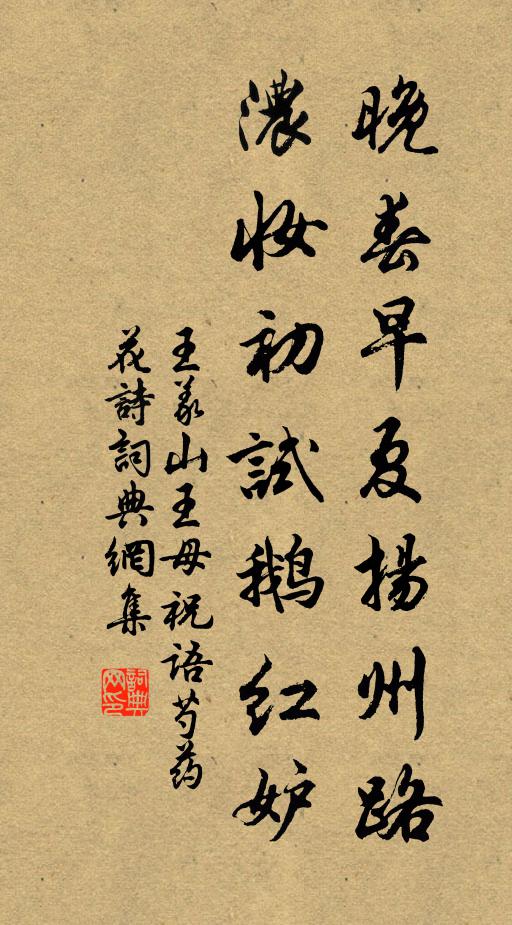 晚春早夏揚州路
濃妝初試鵝紅妒
王義山王母祝語芍药
花詩詞典網集
詞典網印